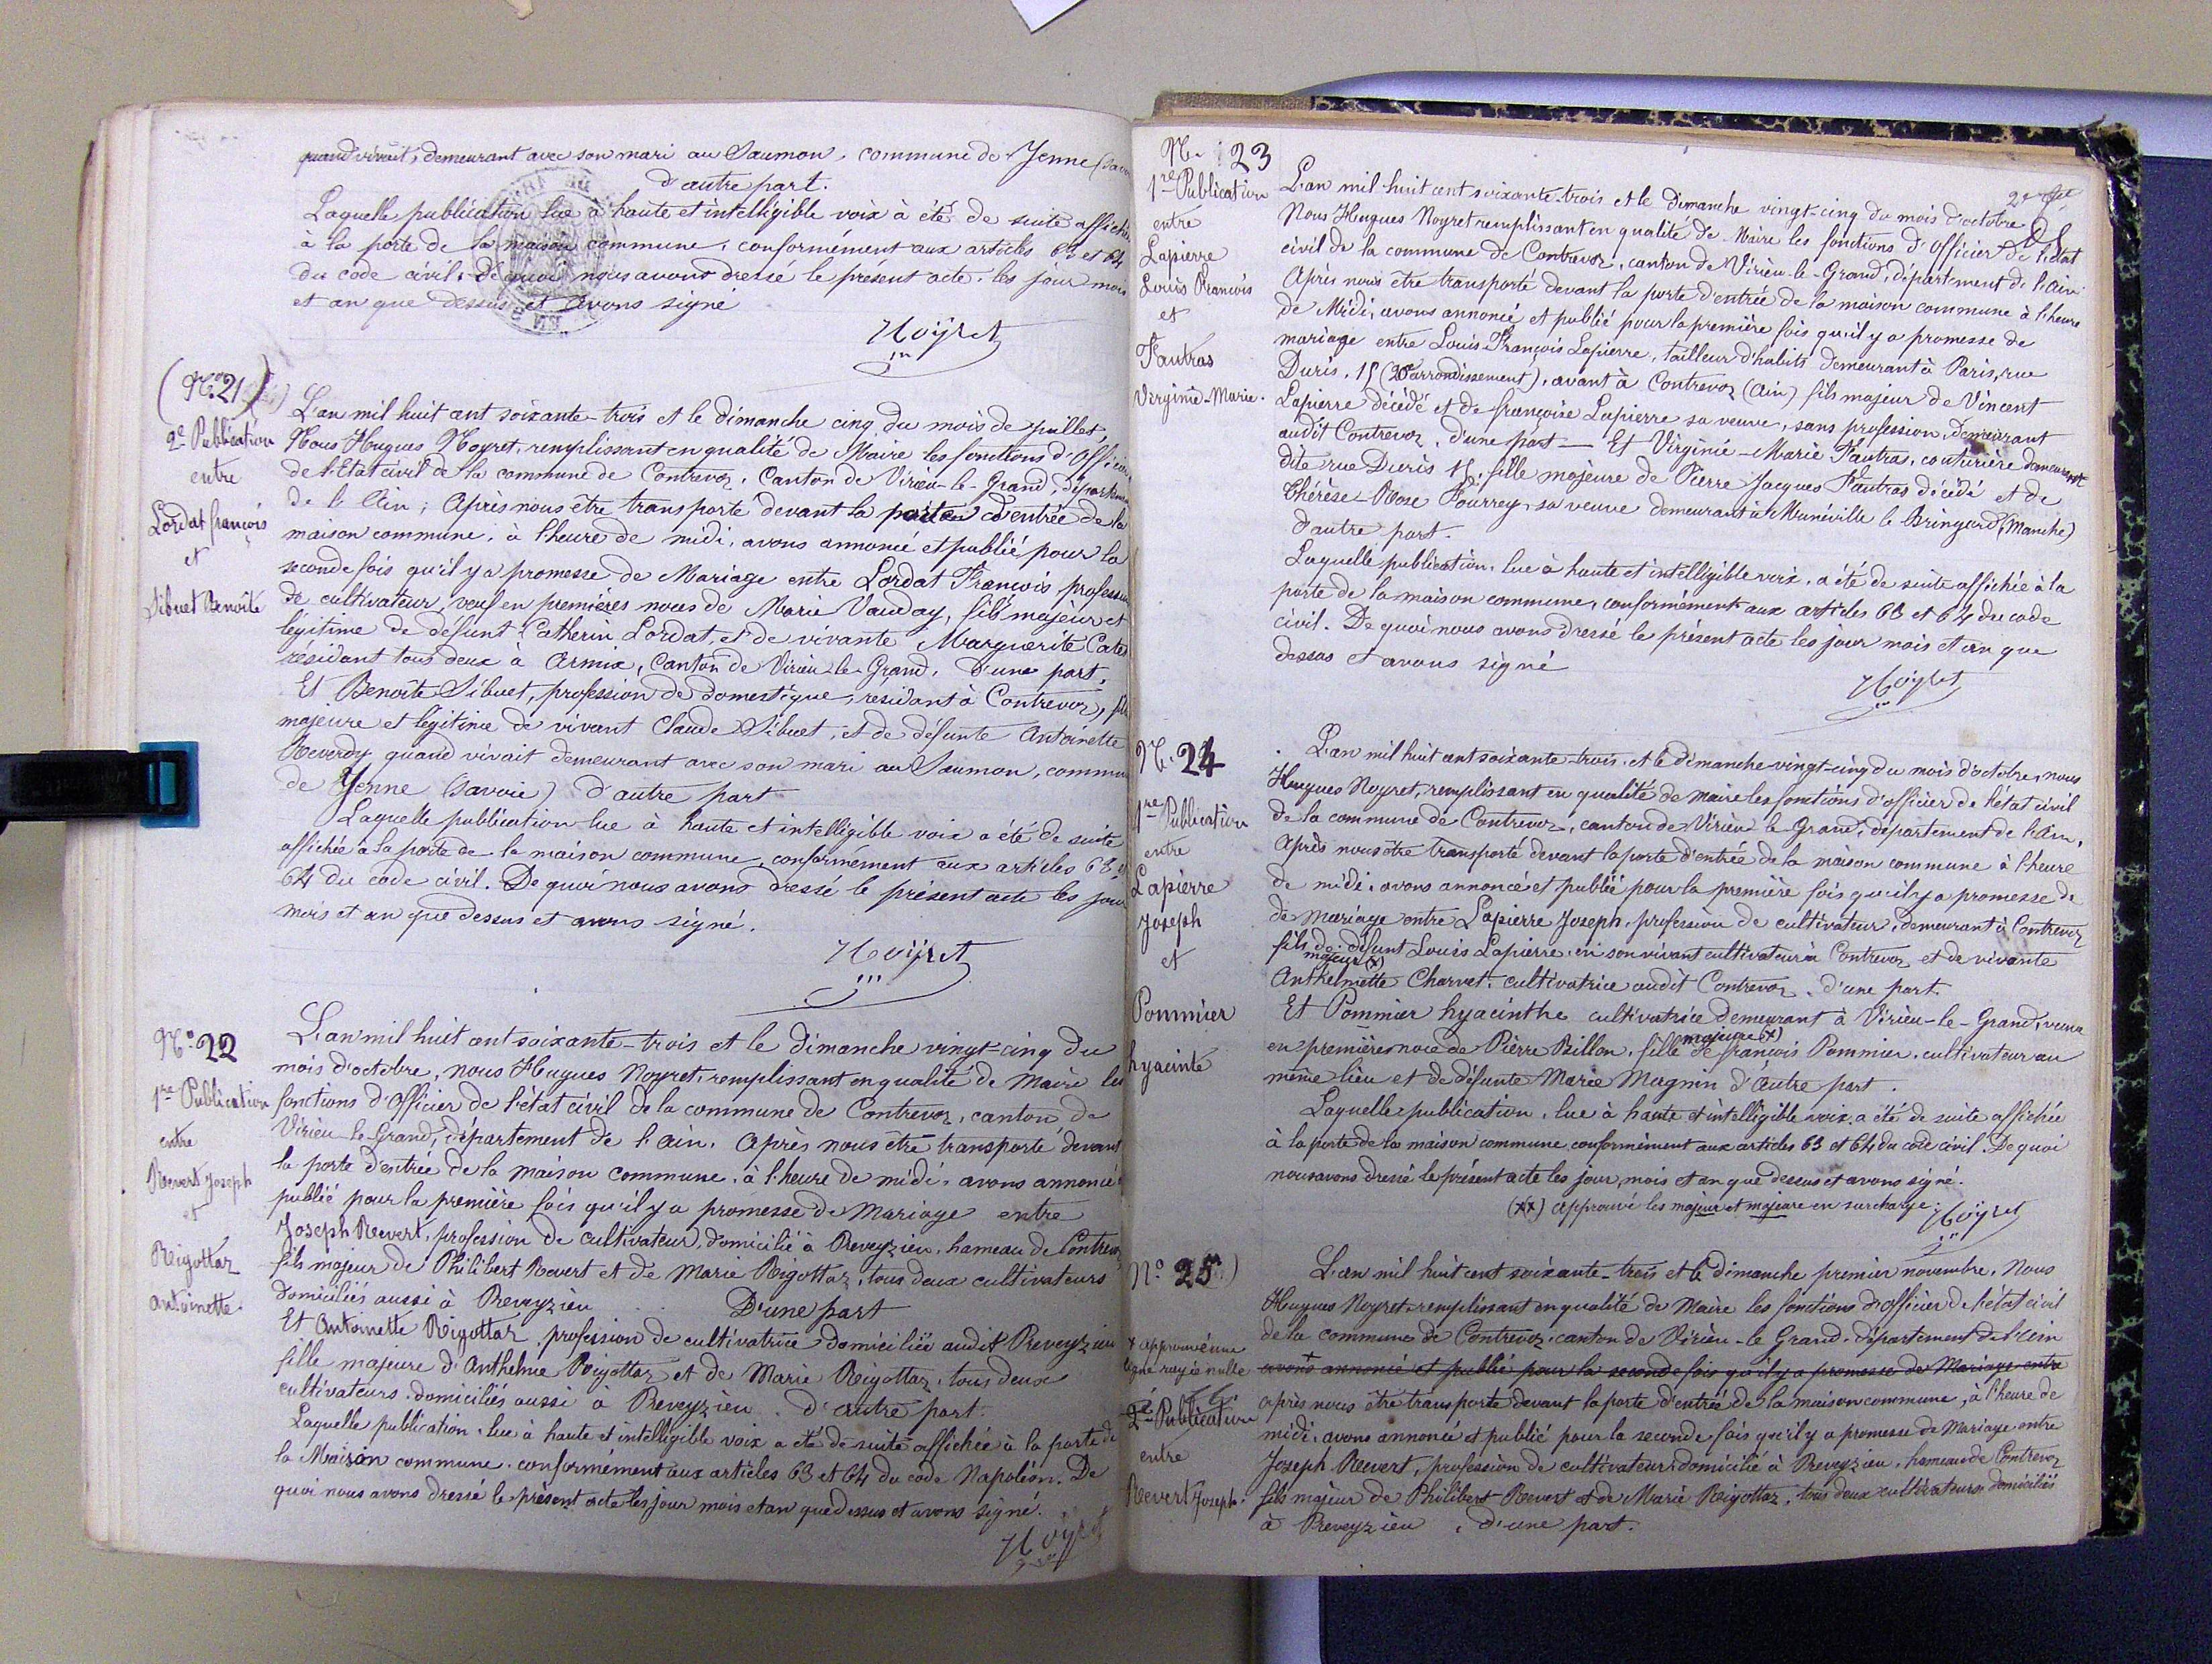 quand vivait, demeurant avec son mari au Saumon, commune de Yenne
d'autre part.
Laquelle publication lue à haute et intelligible voix à été de suite affichée
à la porte de la maison commune, conformément aux articles 63 et 64
du code civil. De quoi nous avons dressé le présent acte les jour mois
et an que dessus et avons signé
Noyret
(N° 21)
2e Publication
entre
Lordat françois
et
Sibuet Benoîte
L'an mil huit cent soixante-trois et le dimanche cinq du mois de juillet,
Nous Hugues Noyret, remplissant en qualité de Maire les fonctions d'Officier
de l'Etat civil de la commune de Contrevoz, Canton de Virieu-le-Grand, départeme
de l'Ain; Après nous être transporté devant la porte d'entrée de la
maison commune, à l'heure de midi, avons annoncé et publié pour la
seconde fois qu'il y a promesse de Mariage entre Lordat François profession
de cultivateur, veuf en premières noces de Marie Vauday, fils majeur et
légitime de défunt Catherin Lordat, et de vivante Marguerite
résidant tous deux à Armix, Canton de Virieu-le-Grand, D'une part,
Et Benoîte Sibuet, profession de domestique, residant à Contrevoz,
majeure et légitime de vivant Claude Sibuet, et de défunte Antoinette
Reverdy quand vivait demeurant avec son mari au Saumon, commun
de Yenne (Savoie) d'autre part
Laquelle publication lue à haute et intelligible voix a été de suite
affichée à la porte de la maison commune, conformément aux articles 63 et
64 du code civil. De quoi nous avons dressé le présent acte les jour
mois et an que dessus et avons signé.
Noyret
N° 22
1re Publication
entre
Revert Joseph
et
Rigottaz
Antoinette.
L'an mil huit cent soixante-trois et le dimanche vingt-cinq du
mois d'octobre, nous Hugues Noyret, remplissant en qualité de Maire les
fonctions d'Officier de l'état civil de la commune de Contrevoz, canton de
Virieu-le-Grand, département de l'ain. Après nous être transporté devant
la porte d'entrée de la maison commune, à l'heure de midi, avons annoncé
publié pour la première fois qu'il y a promesse de Mariage entre
Joseph Revert, profession de cultivateur, domicilié à Preveyzieu, hameau de Contrevoz
fils majeur de Philibert Revert et de Marie Rigottaz, tous deux cultivateurs
domiciliés aussi à Preveyzieu D'une part
Et Antoinette Rigottaz, profession de cultivatrice domiciliée audit Preveyzieu
fille majeure d'Anthelme Rigottaz et de Marie Rigottaz, tous deux
cultivateurs domiciliés aussi à Preveyzieu. d'autre part.
Laquelle publication, lue à haute et intelligible voix a été de suite affichée à la porte de
la Maison commune conformément aux articles 63 et 64 du code Napoléon. De
quoi nous avons dressé le présent acte les jour mois et an que dessus et avons signé.
Noyret
N. 23
1re Publication
entre
Lapierre
Louis François
et
Fautras
Virginie-Marie.
L'an mil huit cent soixante-trois et le Dimanche vingt-cinq du mois d'octobre
Nous Hugues Noyret remplissant en qualité de Maire les fonctions d'Officier de l'état
civil de la commune de Contrevoz, canton de Virieu-le-Grand, département de l'ain.
Après nous être transporté devant la porte d'entrée de la maison commune à l'heure
de Midi, avons annoncé et publié pour la première fois qu'il y a promesse de
mariage entre Louis François Lapierre, tailleur d'habits demeurant à Paris, rue
Duris, 15 (20e arrondissement), avant à Contrevoz (Ain) fils majeur de Vincent
Lapierre décédé et de françoise Lapierre sa veuve, sans profession, demeurant
audit Contrevoz, d'une part — Et Virginie-Marie Fautras, couturière demeurant
dite rue Duris 15, fille majeure de Pierre Jacques Fautras décédé et de
Thérèse-Rose Fourrey, sa veuve demeurant à Munéville le Bringard (Manche)
d'autre part.
Laquelle publication, lue à haute et intelligible voix, a été de suite affichée à la
porte de la maison commune, conformément aux articles 63 et 64 du code
civil. De quoi nous avons dressé le présent acte les jour mois et an que
dessus et avons signé
Noyret
N. 24
1re Publication
entre
Lapierre
Joseph
et
Pommier
hyacinte
L'an mil huit cent soixante-trois, et le dimanche vingt-cinq du mois d'octobre, nous
Hugues Noyret, remplissant en qualité de maire les fonctions d'officier de l'état civil
de la commune de Contrevoz, canton de Virieu-le-Grand, département de l'Ain,
Après nous être transporté devant la porte d'entrée de la maison commune à l'heure
de midi, avons annoncé et publié pour la première fois qu'il y a promesse de
de mariage entre Lapierre Joseph, profession de cultivateur, demeurant à Contrevoz
fils de défunt Louis Lapierre, en son vivant cultivateur à Contrevoz et de vivante
majeur (x)
Anthelmette Charvet, cultivatrice audit Contrevoz, d'une part.
Et Pommier hyacinthe cultivatrice demeurant à Virieu-le-Grand, veuve
majeure (x)
en première noce de Pierre Billon, fille de françois Pommier, cultivateur au
même lieu et de défunte Marie Magnin d'autre part.
Laquelle publication, lue à haute et intelligible voix, a été de suite affichée
à la porte de la maison commune conformément aux articles 63 et 64 du code civil. De quoi
nous avons dressé le présent acte les jour, mois et an que dessus et avons signé.
(xx) approuvé les majeur et majeure en surcharge.
Noyret
N° 25
x approuvé une
ligne rayée nulle
2e Publication
entre
Revert Joseph.
L'an mil huit cent soixante-trois et le dimanche premier novembre, Nous
Hugues Noyret remplissant en qualité de Maire les fonctions d'officier de l'état civil
de la commune de Contrevoz, canton de Virieu-le Grand, département de l'ain
avons annoncé et publié pour la seconde fois qu'il y a promesse de Mariage entre
après nous être transporté devant la porte d'entrée de la maison commune, à l'heure de
midi, avons annoncé et publié pour la seconde fois qu'il y a promesse de Mariage entre
Joseph Revert, profession de cultivateur domicilié à Preveyzieu, hameau de Contrevoz
fils majeur de Philibert Revert et de Marie Rigottaz, tous deux cultivateurs domiciliés
à Preveyzieu, d'une part.